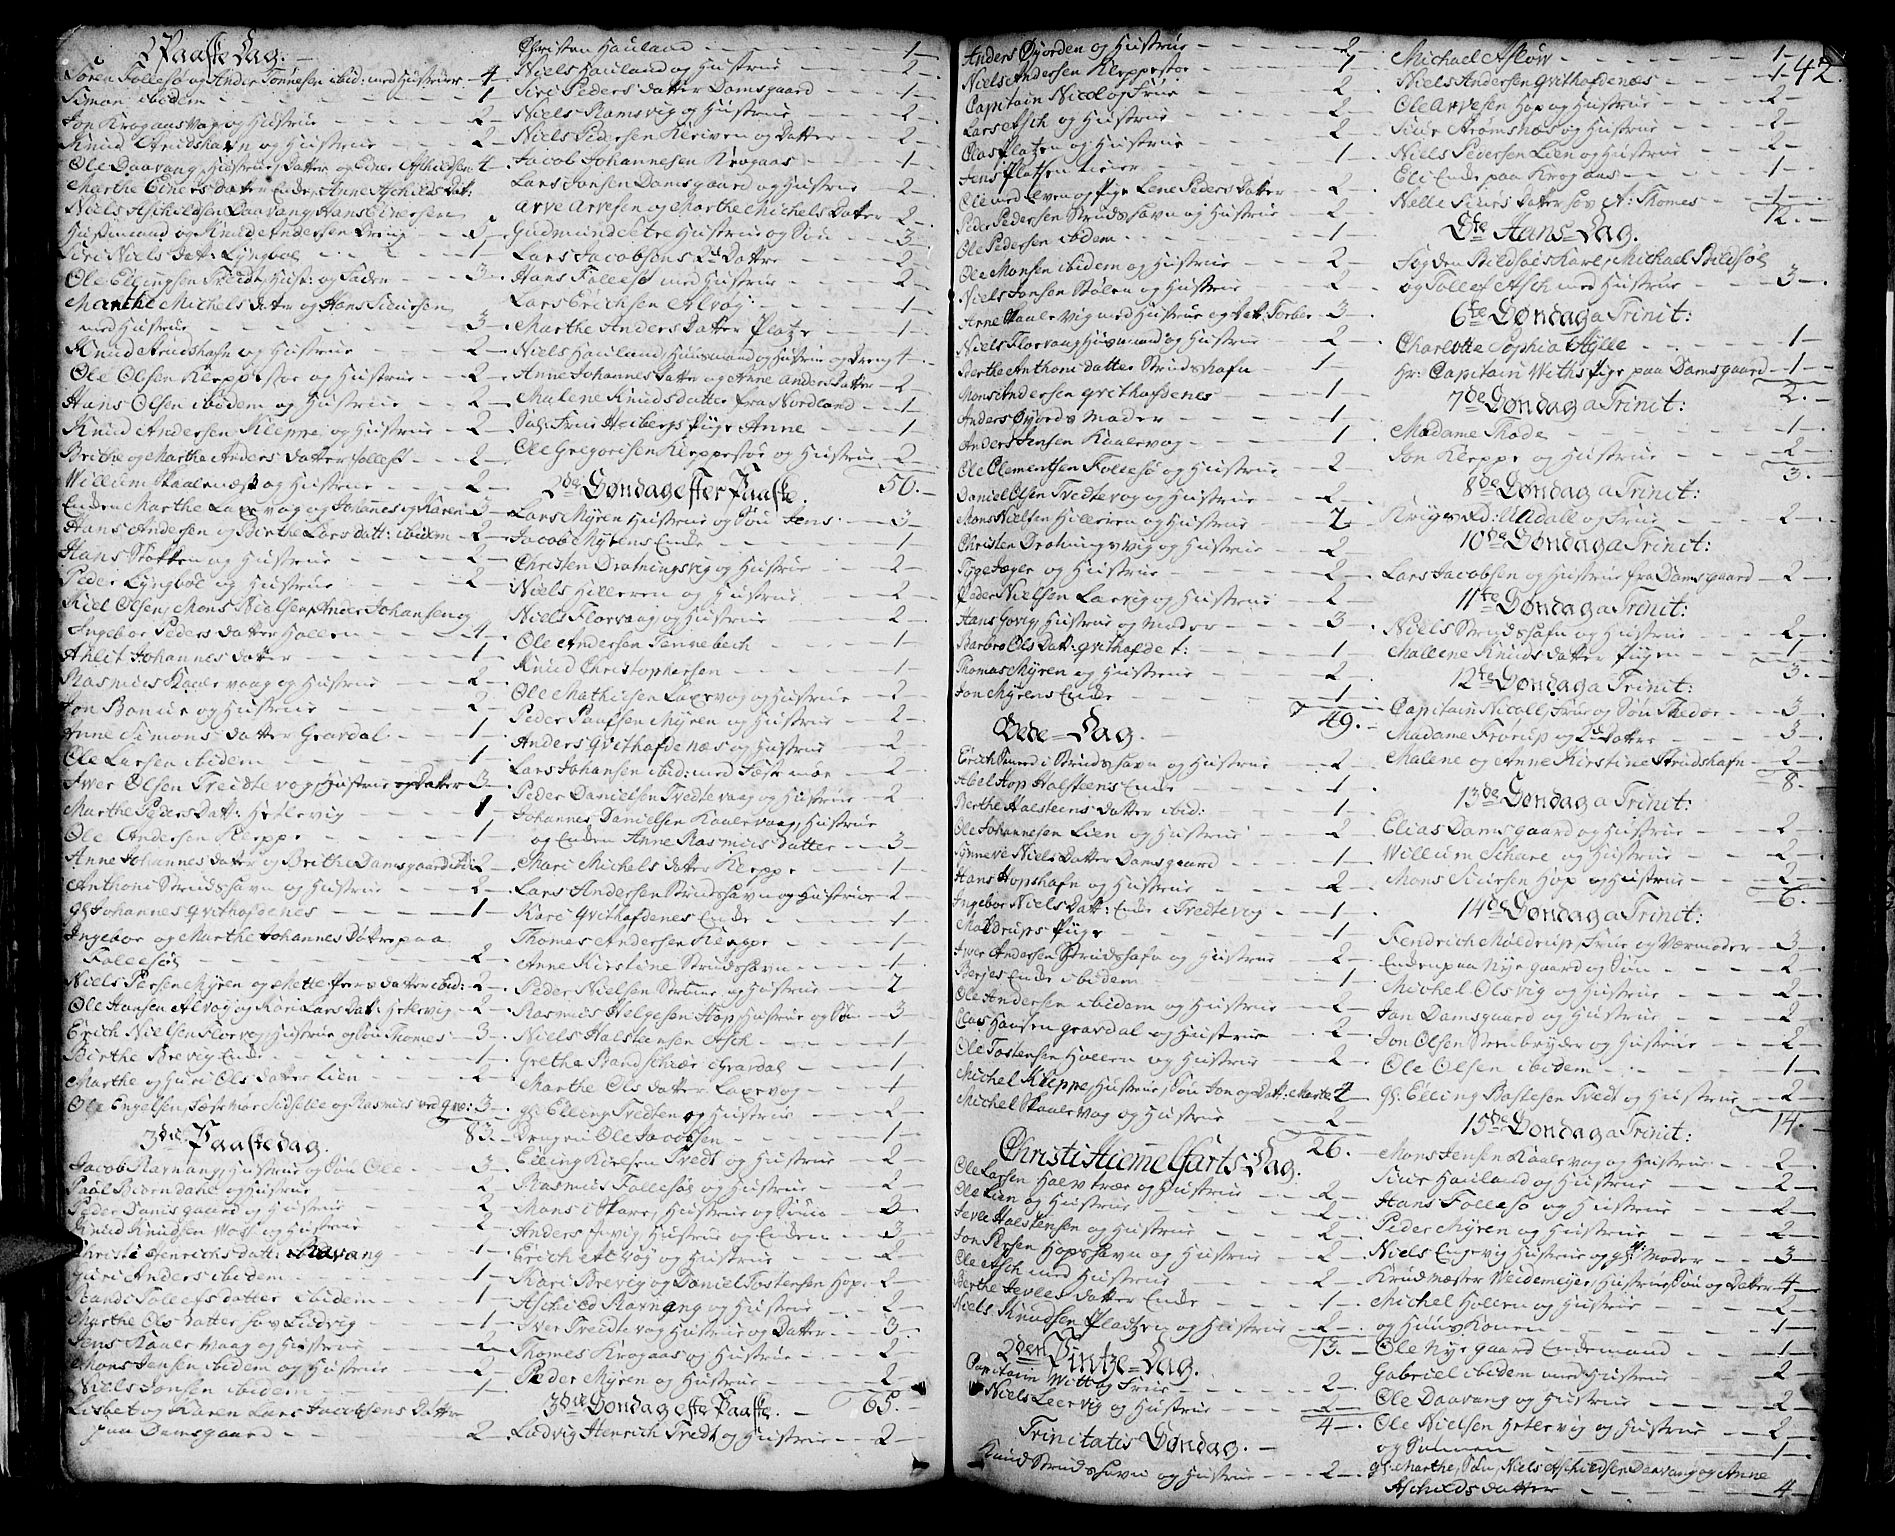 2 Paaske Dag.
Sören Follesø og Ander Tonnesen ibid: med Hustruer 4
Simon ibidem 1
Jon Krogaasvog og Hustrue 2
Knud Strudshavn og Hustrue 2
Ole Daavang, Hustrue, Datter og Einer Aschildsen 4
Marthe Einers datter Enke, Anne Aschilds Dat:
Niels Aschildsen Daavang, Hans Einersen
Huusmand og Knud Andersen Dreng
Siri Niels Datt: Lyngbøe 1
Ole Ellingsen Tredt, Hust: og Fader 3
Marthe Michels Datter og Hans Siursen
med Hustrue 3
Knud Strudshafn og Hustrue 2
Ole Olsen Kleppestøe og Hustrue 2
Hans Olsen ibidem og Hustrue 2
Knud Andersen Kleppe og Hustrue 2
Brithe og Martha Anders datter Follesø 2
Willum Skaalenæss og Hustrue 2
Enken Marthe Laxevog og Johanes og Karen 3
Hans Andersen og Birthe Lars datt: ibidem 2
Hans Støkken og Hustrue 2
Peder Lyngbøe og Hustrue 2
Kiel Olsen, Mons Nielsen, Ander Johansen og
Ingebor Peders Datter Holleen 4
Ahlit Johannes datter 1
Rasmus Kaalevaag og Hustrue 2
Jon Bonue og Hustrue 2
Anne Simons datter Geardal 1
Ole Larsen ibidem 1
Iwer Olsen Treidtevog Hustrue og Datter 3
Marthe Peders Datt: Hetlevig 1
Ole Andersen Kleppe 1
Anne Johannes datter og Brithe Damsgaard ibid: 2
Anthoni Strudshavn og Hustrue 2
gl: Johannes Qvithofdenes 1
Ingebor og Marthe Johannes Døtre paa
Follesøe 2
Niels Persen Myren og Mette Pers datter ibid: 2
Ole Hansen Alvog og Kari Lars Dat: Hetlevig 2
Erich Nielsen Florvog Hustrue og Søn Thomes 3
Birthe Brevig Enke 1
Marthe og Guri Ols datter Lien 2
Ole Engelsen, Fæstemøe Sidselle og Rasmus 3
83.
3die Paaskedag.
Jacob Ravnang, Hustrue og Søn Ole 3
Paal Biørndahl og Hustrue 2
Peder Damsgaard og Hustrue 2
Knud Knudsen Wog og Hustrue 2
Christi Henrichs datt: Ladvang 1
Guri Anders ibidem 1
Randi Tollefs datter ibidem 1
Marthe Ols datter hos Ludvig 1
Jens Kaalevaag og Hustrue 2
Mons Jensen ibidem og Hustrue 2
Niels Jonsen ibidem 1
Lisbet og Karen Lars Jacobsens Døtter
paa Damsgaard 2
Christen Hauland 1
Niels Hauland og Hustrue 2
Siri Peders datter Damsgaard 1
Niels Ramsvig og Hustrue 2
Niels Pedersen Kleiven og Datter 2
Jacob Johannesen Krogaas 1
Lars Jonsen Damsgaard og Hustrue 2
Arve Arvesen og Marthe Michels Datter 2
Gudmund Setre Hustrue og Søn 3
Lars Jacobsens 2de Døttre 2
Hans Follesø med Hustrue 2
Lars Erichsen Alvog 1
Marthe Anders datter Platze 1
Niels Hauland, Huusmand og Hustrue og Dreng 4
Anne Johannes Datter og Anne Anders Datter 2
Malene Knuds datter fra Nordland 1
Sal: Frue Heibergs Pige Anne 1
Ole Gregorisen Kleppestøe og Hustrue 2
50.
2de Søndag efter Paaske.
Lars Myren Hustrue og Søn Jens 3
Jacob Myrens Enke 1
Christen Drotningsvig og Hustrue 2
Niels Hilleren og Hustrue 2
Niels Florvaag og Hustrue 2
Ole Andersen Tennebech 1
Knud Christophersen 1
Ole Mathisen Laxevog og Hustrue 2
Peder Paulsen Myren og Hustrue 2
Anders Qvithofdenæs og Hustrue 2
Lars Johansen ibid: med Fæstemøe 2
Peder Danielsen Tredtevaag og Hustrue 2
Johannes Danielsen Kaalevaag, Hustrue
og Enken Anne Rasmus datter 3
Mari Michels datter Kleppe 1
Lars Andersen Strudshavn og Hustrue 2
Kari Qvithofdenes Enke 1
Thomes Andersen Kleppe 1
Anne Kirstine Strudshavn 1
Peder Nielsen Strøme og Hustrue 2
Rasmus Helgesen Hop, Hustrue og Søn 3
Niels Halstensen Asch 1
Grethe Bandschier Geardal 1
Marthe Ols datter Laxevog 1
gl: Elling Tredten og Hustrue 2
Drugen Ole Jacobsen 1
Elling Kielsen Tredt og Hustrue 2
Rasmus Follesøe og Hustrue 2
Mons i Skare, Hustrue og Svin 3
Anders Juvig, Hustrue og Enken 3
Erich Alvog og Hustrue 2
Kari Brevig og Daniel Tostensen Hop 2
Aschild Ravnang og Hustrue 2
Iver Tredtevog Hustrue og Datter 3
Thomes Krogaas og Hustrue 2
Peder Myren og Hustrue 2
65.
3die Søndag efter Paaske.
Ludvig Henrich Tredt og Hustrue 2
Anders Øyorden og Hustrue 2
Niels Andersen Kleppestøe 1
Capitain Nicol og Frue 2
Lars Asch og Hustrue 2
Clas Platzen og Hustrue 2
Jens Platsen 1
Ole med Even og Pige Lene Peders Datter 2
Peder Pedersen Strudshavn og Hustrue 2
Ole Pedersen ibidem 1
Ole Monsen ibidem og Hustrue 2
Niels Jonsen Stølen og Hustrue 2
Arne Skaalevig med Hustrue og Dat: Torber 3
Niels Florvang Husmand og Hustrue 2
Berthe Anthoni datter Strudshafn 1
Mons Andersen Qvithofdenes 1
Anders Øyords Moder 1
Anders Jensen Kaalevog 1
Ole Clementsen Follesø og Hustrue 2
Daniel Olsen Tredtevog og Hustrue 2
Mons Nielsen Hilleren og Hustrue 2
Christen Drotningsvig og Hustrue 2
Tyge Jæger og Hustrue 2
Peder Nielsen Laevig og Hustrue 2
Hans Govig Hustrue og Moder 3
Barbro Ols Dat: Qvithofdet: 1
Thomas Myren og Hustrue 2
Jon Myrens Enke 1
49.
Bede-Dag.
Erich Smed i Strudshavn og Hustrue 2
Abel Hop Halsteens Enke 1
Berthe Halsteens datter ibid: 1
Ole Johannesen Lien og Hustrue 2
Synneve Niels Datter Damsgaard 1
Hans Hopshafn og Hustrue 2
Ingebor Niels Datt: Enke i Tredtevog 1
Moldrups Pige 1
Iver Andersen Strudshafn og Hustrue 2
Berjes Enke ibidem 1
Ole Andersen ibidem og Hustrue 2
Clas Hansen Geardal og Hustrue 2
Ole Tostensen Holleen og Hustrue 2
Michel Kleppe, Hustrue, Søn Jon og Datt: Marte 4
Michel Skaalevog og Hustrue 2
26.
Christi Himmelfarts Dag.
Ole Larsen Halvtræe og Hustrue 2
Ole Lien og Hustrue 2
Tevle Halstensen og Hustrue 2
Jon Persen Hopshavn og Hustrue 2
Ole Asch med Hustrue 2
Berthe Tevles datter Enke 1
Niels Knudsen Pladtzen og Hustrue 2
13.
2den Pintze-Dag.
Capitain Witt og Frue 2
Niels Leervig og Hustrue 2
4.
Trinitatis Søndag.
Knud Strudshavn og Hustrue 2
42.
Michael Asløw 1
Niels Andersen Qvithofdenæs 1
Ole Arvesen Hop og Hustrue 2
Siur Strømsnæs og Hustrue 2
Niels Pedersen Lien og Hustrue 2
Eli Enke paa Krogaas 1
Nelle Siurs Datter hos A: Thomes 1
12.
Ste Hans Dag.
Fogden Bildsøes Karl, Michael Bildsøe
og Tollef Asch med Hustrue 3
6te Søndag a Trinit:
Charlotte Sophia Hylle 1
Hr: Capitain With's Pige paa Damsgaard 1
2.
7de Søndag a Trinit:
Madame Thode 1
Jon Kleppe og Hustrue 2
3.
8de Søndag a Trinit:
Krigsraad: Undall og Frue 2
10de Søndag a Trinit:
Lars Jacobsen og Hustrue fra Damsgaard 2
11te Søndag a Trinit:
Niels Strudshafn og Hustrue 2
Mallene Knuds datter Pigen 1
3.
12te Søndag a Trinit:
Capitain Nicoll, Frue og Søn Thedor 3
Madame Frørup og 2de Døttre 3
Malene og Anne Kirstine Strudshafn 2
8.
13de Søndag a Trinit:
Elias Damsgaard og Hustrue 2
Willum Schare og Hustrue 2
Mons Siursen Hop og Hustrue 2
6.
14de Søndag a Trinit:
Fendrich Moldrup, Frue og Værmoder 3
Enken paa Nye gaard og Søn 2
Michel Olsvig og Hustrue 2
Jan Damsgaard og Hustrue 2
Jon Olsen Steenbryder og Hustrue 2
Ole Olsen ibidem 1
gl: Elling Bastesen Tredt og Hustrue 2
14.
15de Søndag a Trinit:
Mons Jensen Kaalevog og Hustrue 2
Siur Hauland og Hustrue 2
Hans Follesø og Hustrue 2
Peder Myren og Hustrue 2
Niels Engevig Hustrue og gl: Moder 3
Krudmester Weidemeyer, Hustrue, Søn og Datter 4
Michel Holleen og Hustrue 2
og Huus Konen 1
Ole Nye gaard Enkemand 1
Gabriel ibidem med Hustrue 2
Ole Daavang og Hustrue 2
Ole Nielsen Hetlevig og Hustrue
og Sønnen 1
gl: Marthe, Niels Aschildsen Daavang og Anne
Aschilds datter 4